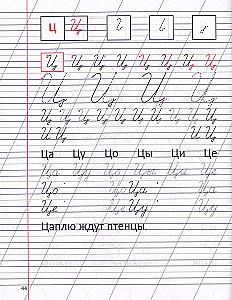 Ц Ц
Ц Ц Ц Ц Ц Ц Ц Ц
Ц Ц Ц Ц
Ц Ц Ц Ц Ц Ц Ц Ц Ц Ц
Ц Ц Ц Ц
Ца Цу Цо Цы Ци Це
Ца Цу Цо Цы Ци Це
Цо Це Ца Ца
Це Це Цу Це
Цаплю ждут птенцы.
44